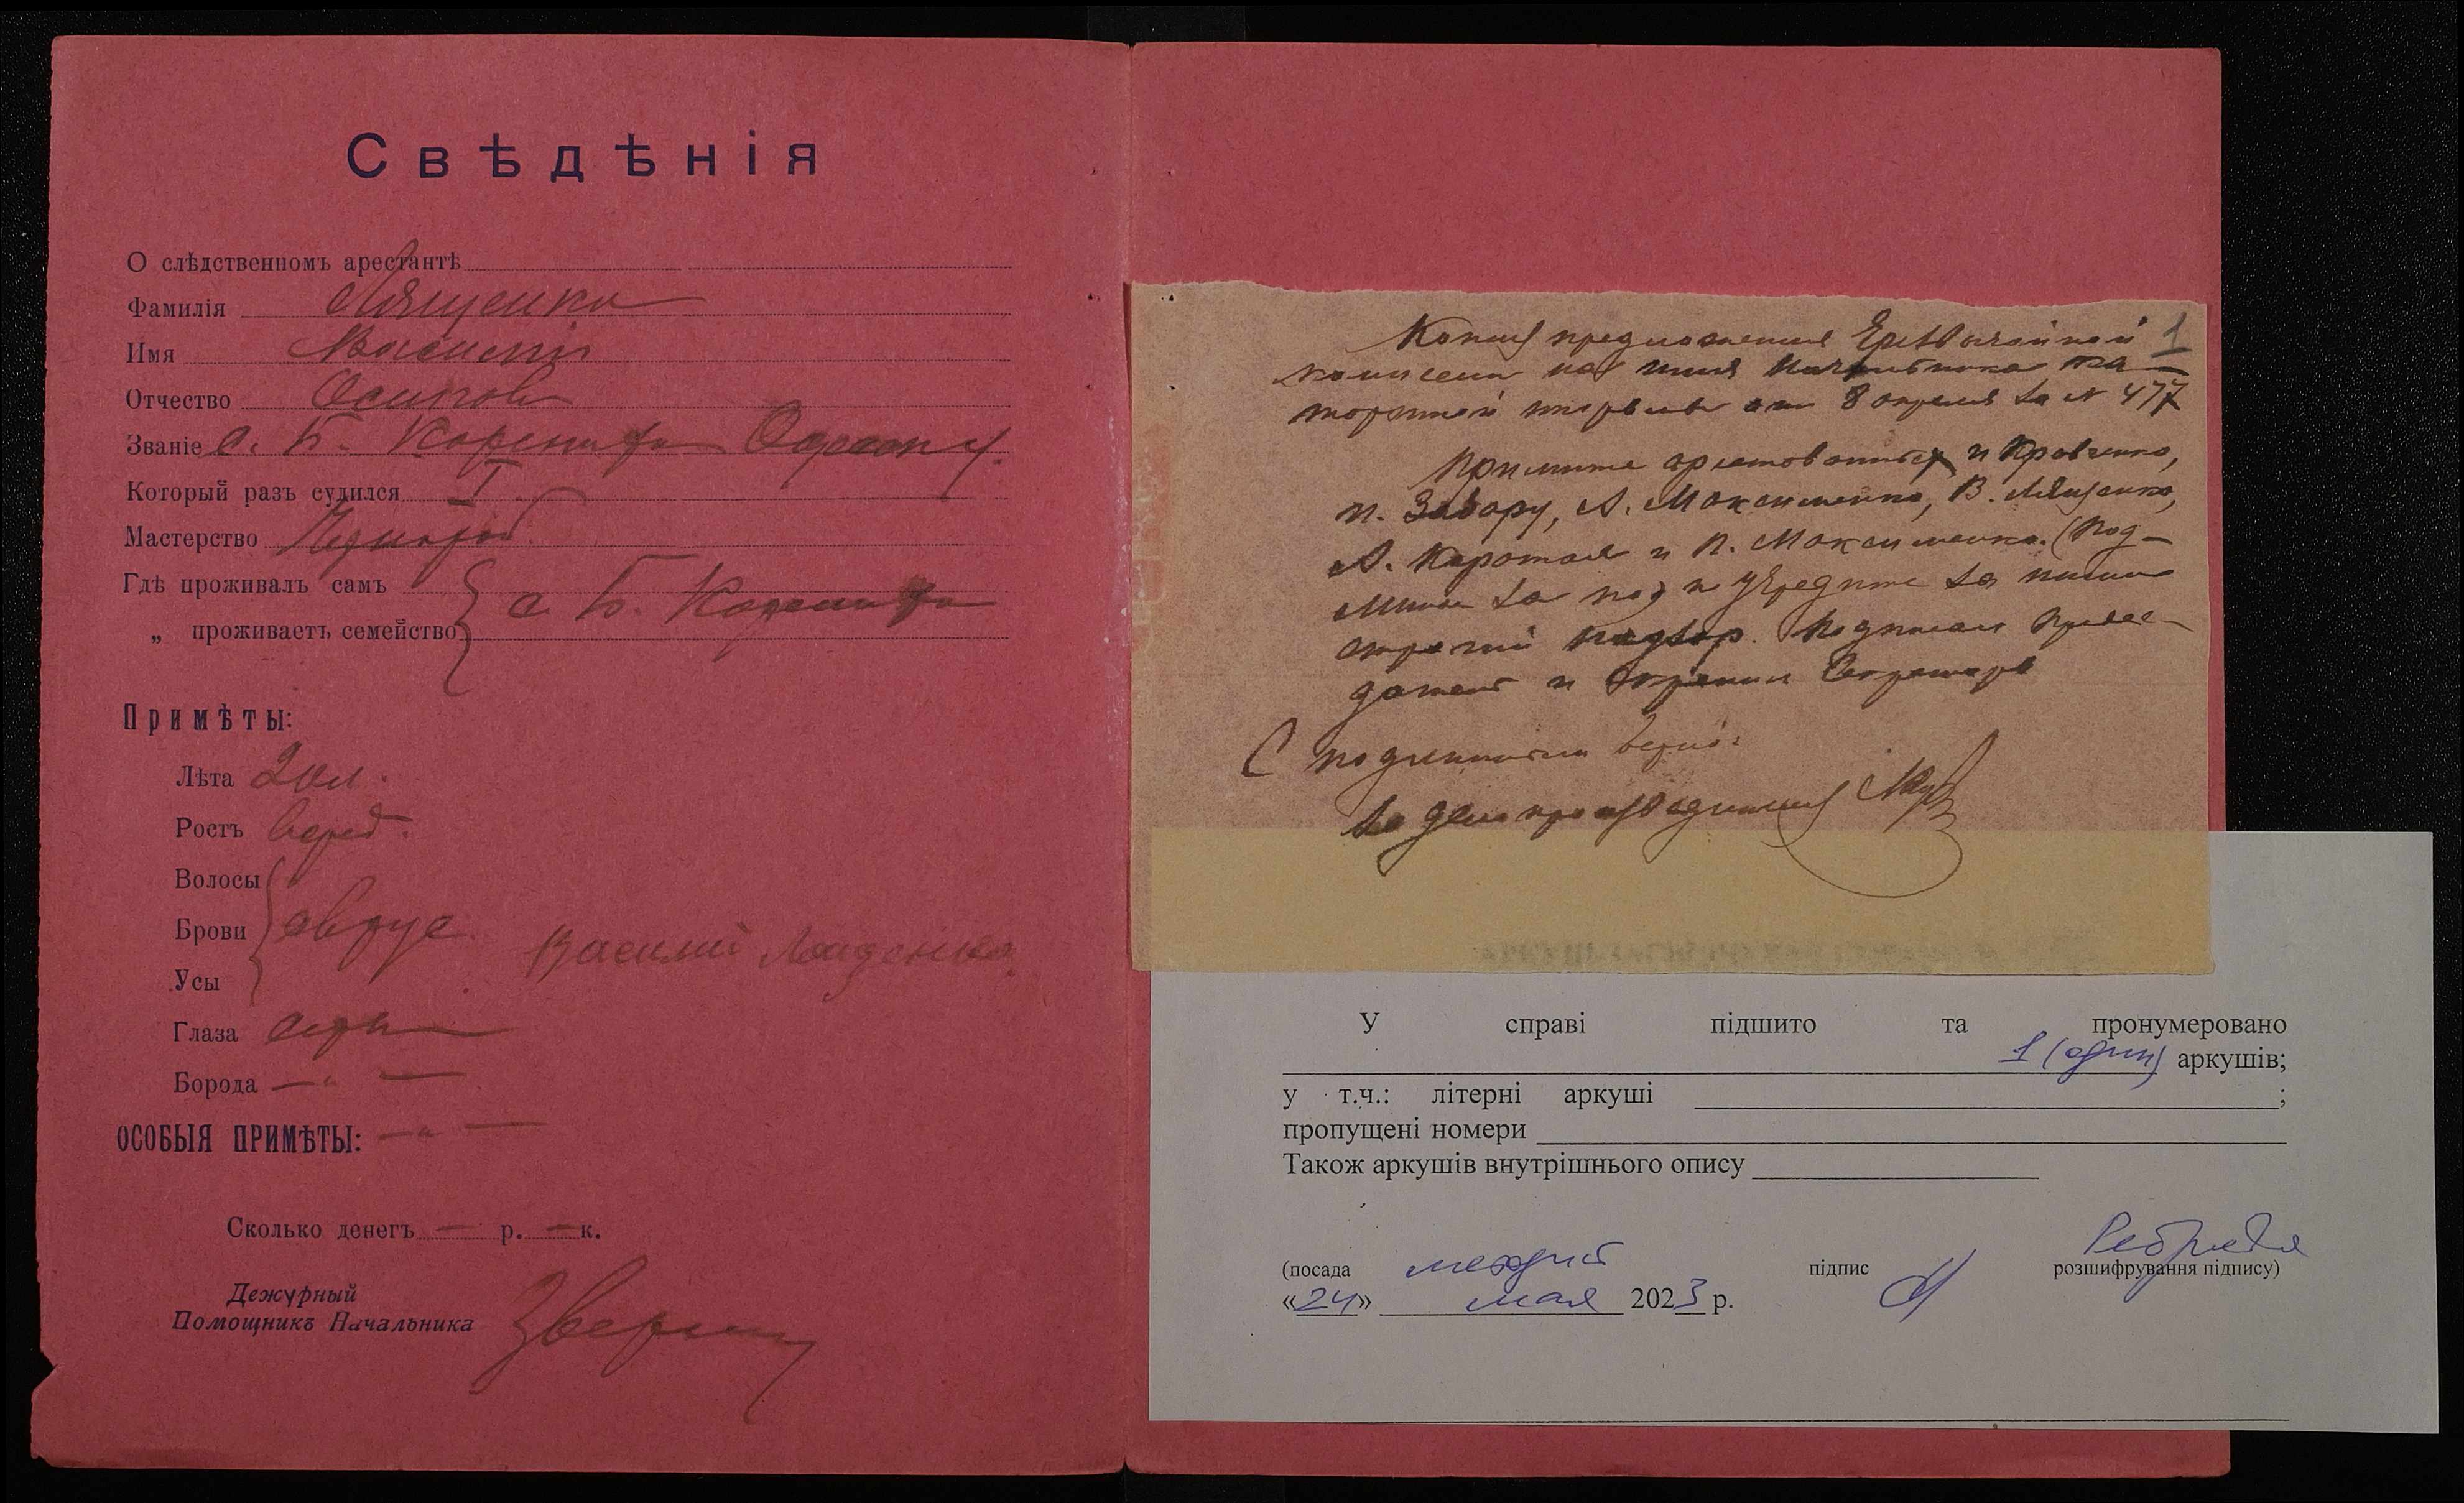 Свѣдѣнія
О слѣдственномъ арестантѣ
Фамилія Лященко
Имя Василій
Отчество Осипов
Званіе с. Б. Корениха Херсон у.
Который разъ судился I
Мастерство Чернораб.
Гдѣ проживалъ самъ
„ проживаетъ семейство с. Б. Корениха
Примѣты:
Лѣта 20 л.
Ростъ сред.
Волосы
Брови
Усы
Василий Лященко
Глаза
Борода — " —
ОСОБЫЯ ПРИМѢТЫ: — " —
Сколько денегъ — р. — к.
Дежурный
Помощникъ Начальника
1
Копия предложения Чрезвычайной
комиссии на имя Начальника ка-
торжной тюрьмы от 8 апреля за № 477
Примите арестованных и Кравченко,
и. Завору, А. Максименко, В. Лященко,
А. Каротая и П. Максименко. (под-
и учредите за ними
строгий надзор. Подписал предсе-
датель и скрепил Секретарь
С подлинным верно:
За делопроизводителя
У справі підшито та пронумеровано
1 (один) аркушів;
у т.ч.: літерні аркуші ;
пропущені номери
Також аркушів внутрішнього опису
(посада підпис розшифрування підпису)
«24» мая 2023 р.